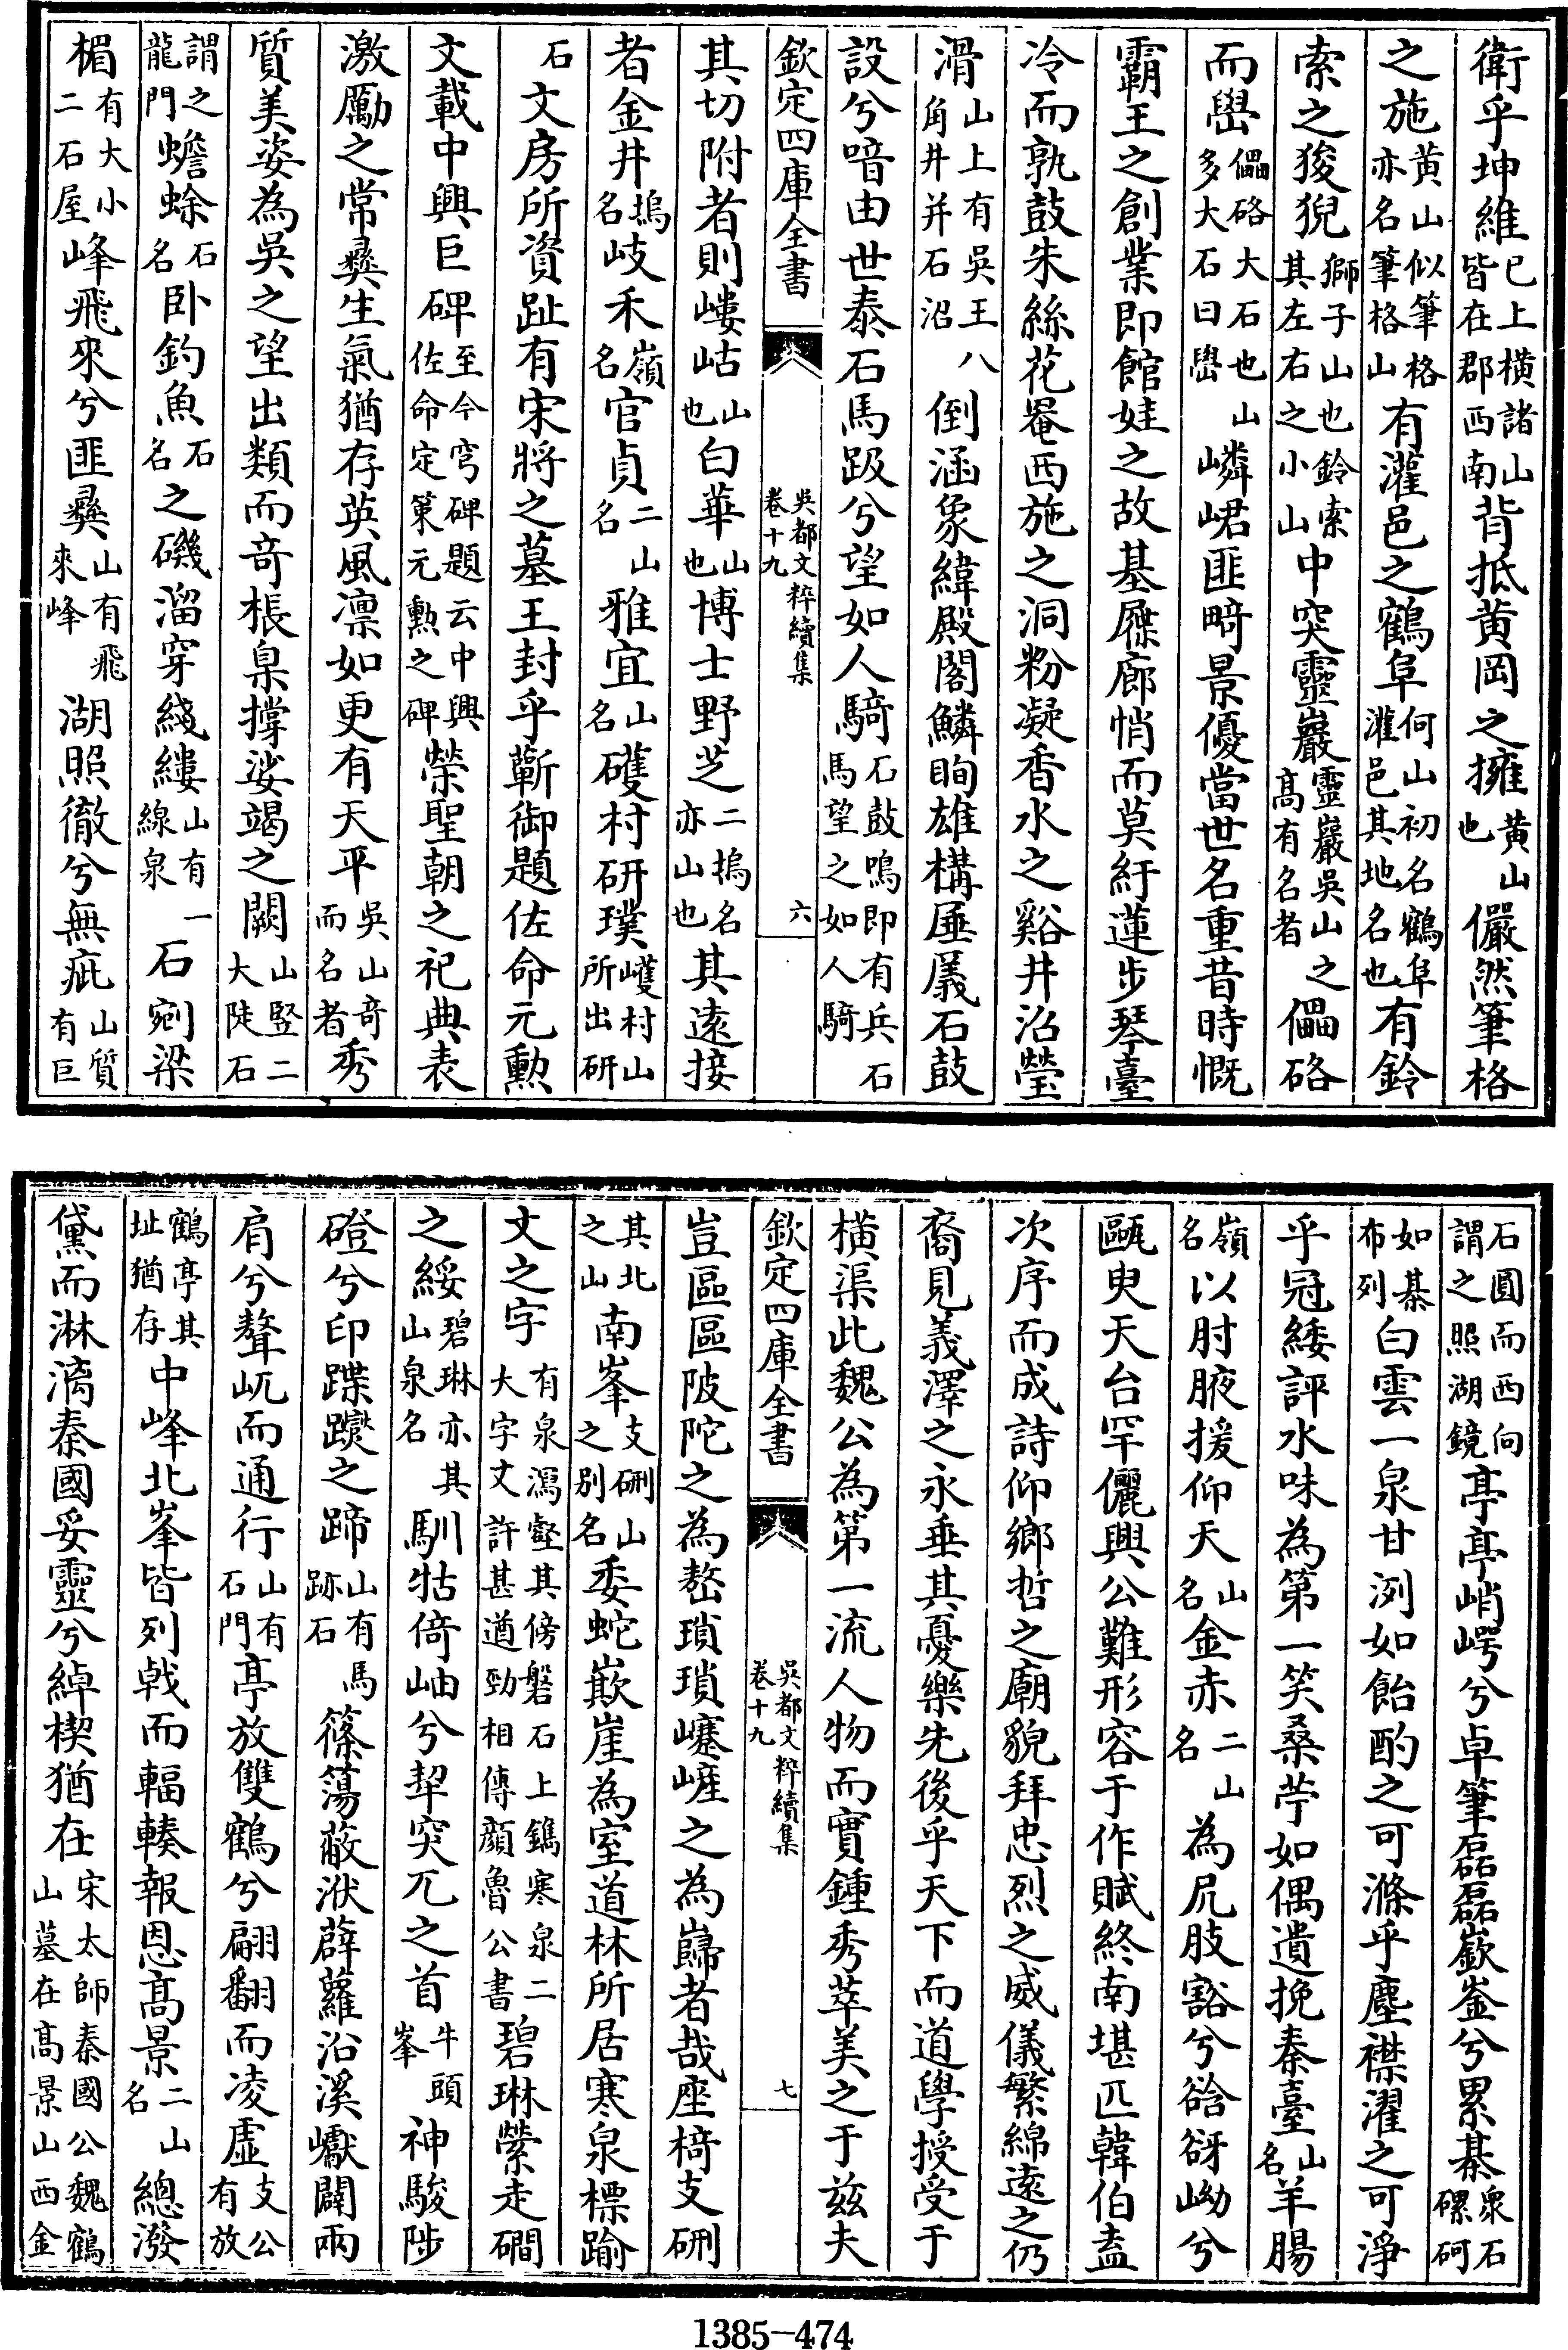 衛乎坤維已上橫諸山皆在郡西南背抵黃岡之擁黃山也儼然筆格
之施黃山似筆格亦名筆格山有灌邑之鶴阜何山初名鶴阜灌邑其地名也有鈴
索之狻猊獅子山也鈴索其左右之小山中突靈巖靈巖吳山之高有名者儡硌
而嶨儡硌大石也山多大石曰嶨嶙峮匪畸景優當世名重昔時慨
霸王之創業即館娃之故基屧廊悄而莫紆蓮步琴臺
冷而孰鼓朱絲花菴西施之洞粉凝香水之谿井沿瑩
滑山上有吳王八角井并石沼倒涵象緯殿閣鱗眴雄構厜㕒石鼓
設兮喑由世泰石馬趿兮望如人騎石鼓鳴即有兵石馬望之如人騎
欽定四庫全書
吳都文粹續集
卷十九
六
其切附者則嶁岵山也白華山也博士野芝二塢名亦山也其遠接
者金井塢名岐禾嶺名官貞二山名雅宜山名村研璞村山所出研
石文房所資趾有宋將之墓王封乎蘄御題佐命元勳
文載中興巨碑至今穹碑題云中興佐命定策元勳之碑榮聖朝之祀典表
激勵之常彝生氣猶存英風凛如更有天平吳山奇而名者秀
質美姿為吳之望出類而奇棖臬撐娑竭之闕山竪二大陡石
謂之龍門蟾蜍石名卧釣魚石名之磯溜穿綫縷山有一線泉石剜梁
楣有大小二石屋峰飛來兮匪彝山有飛來峰湖照徹兮無疵山質有巨
石圓而西向謂之照湖鏡亭亭峭崿兮卓筆磊磊嶔崟兮累棊眾石磥砢
如棊布列白雲一泉甘洌如飴酌之可滌乎塵襟濯之可淨
乎冠緌評水味為第一笑桑苧如偶遺挽秦臺山名羊腸
嶺名以肘腋援仰天山名金赤二山名為尻肢豁兮谽谺岰兮
甌臾天台罕儷興公難形容于作賦終南堪匹韓伯盍
次序而成詩仰鄉哲之廟貌拜忠烈之威儀繁綿遠之仍
裔見義澤之永垂其憂樂先後乎天下而道學授受于
橫渠此魏公為第一流人物而實鍾秀萃美之于茲夫
欽定四庫全書
吳都文粹續集
卷十九
七
豈區區陂陀之為嶅瑣瑣嶘嵯之為巋者哉座椅支硎
其北之山南峯支硎山之別名委蛇嶔崖為室道林所居寒泉標踰
丈之字有泉瀉壑其傍磐石上鐫寒泉二大字丈許甚遒勁相傳顏魯公書碧琳縈走磵
之綏碧琳亦其山泉名馴牯倚岫兮犂突兀之首牛頭峯神駿陟
磴兮印蹀躞之蹄山有馬跡石篠簜蔽洑薜蘿沿溪巘闢兩
肩兮聱屼而通行山有石門亭放雙鶴兮翩翻而凌虛支公有放
鶴亭其址猶存中峰北峯皆列戟而輻輳報恩高景二山名總潑
黛而淋漓秦國妥靈兮綽楔猶在宋太師秦國公魏鶴山墓在高景山西金
1385-474